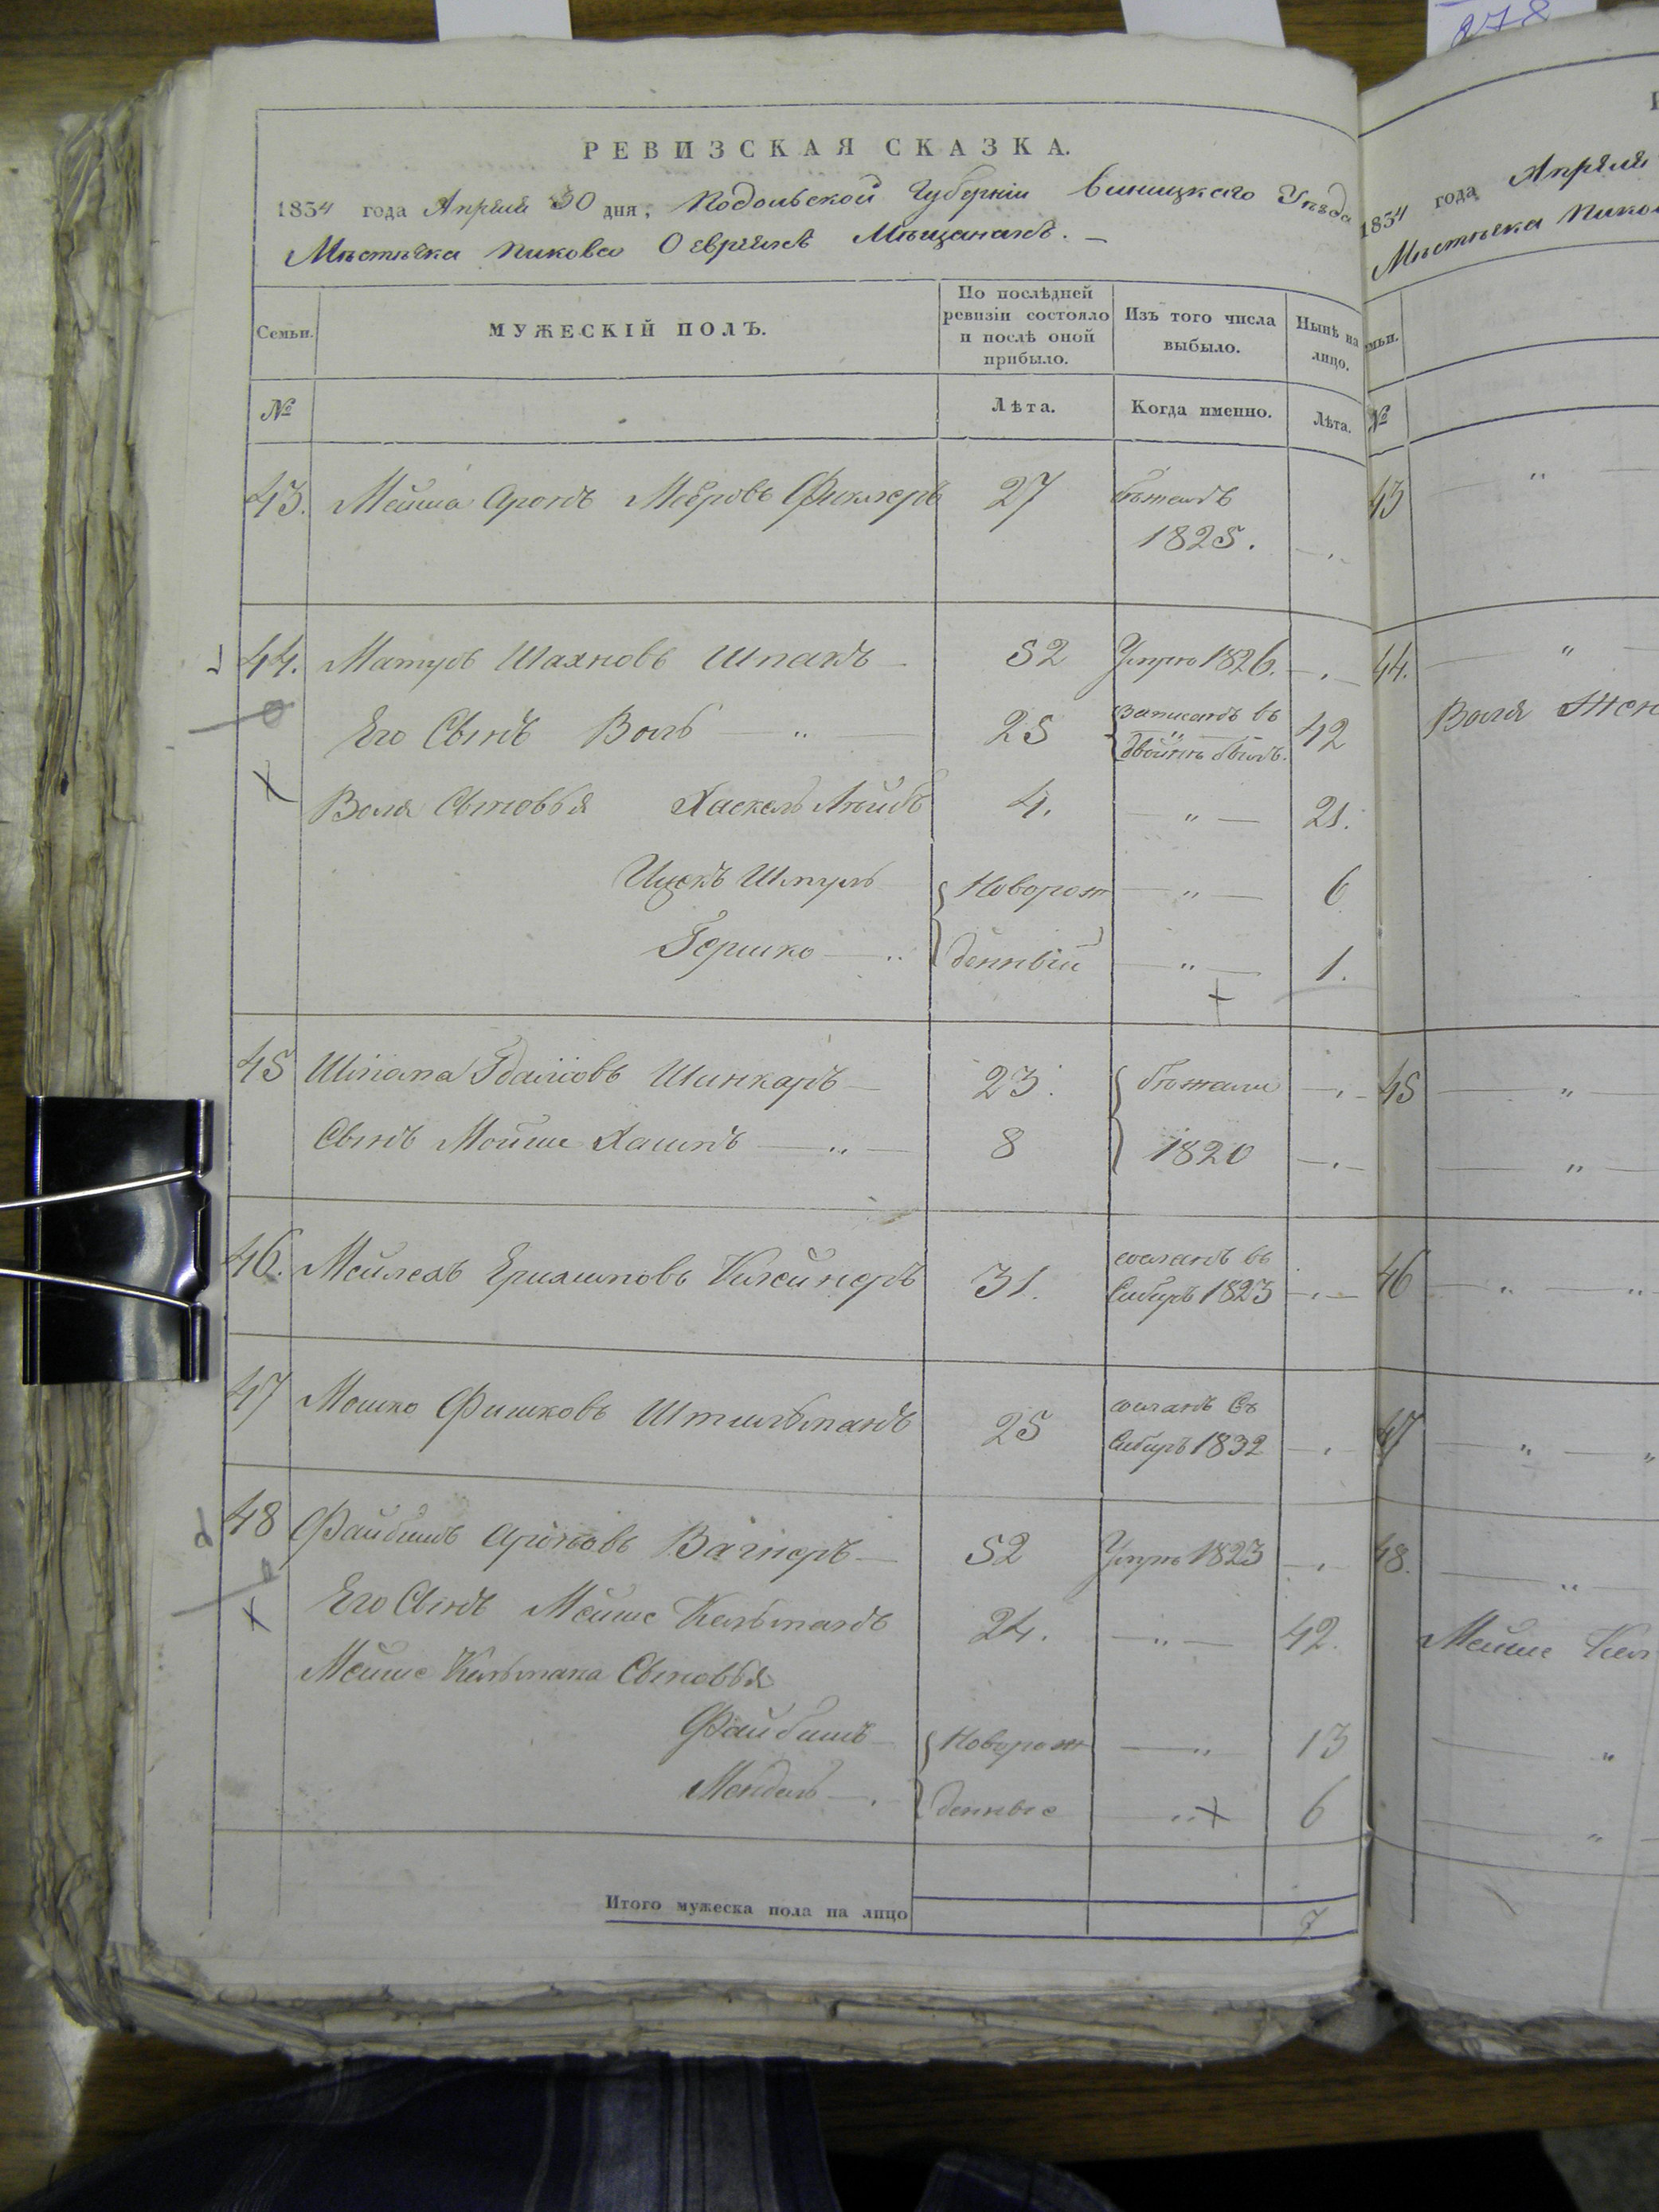 278
РЕВИЗСКАЯ СКАЗКА.
1834 года Апреля 30 дня, Подольской Губерніи Виницкаго Уѣзда
Мѣстечка Пикова О евреяхъ Мѣщанахъ. —
Семьи.
МУЖЕСКІЙ ПОЛЪ.
По послѣдней ревизіи состояло и послѣ оной прибыло.
Изъ того числа выбыло.
Нынѣ на лицо.
№
Лѣта.
Когда именно.
Лѣта.
43. Мейша Аронъ Меѣровъ 27 бѣжалъ
1825.
44. Шахновъ Шпакъ 52 Умре 1826.
Его Сынъ Воль 25 Записанъ въ 42
двойнѣ былъ.
Воля Сыновья Хаскель Лейбъ 4. 21.
Ицекъ Шмуль Новорож 6
Гершко денный 1.
45 Шинкаръ 23. бѣжали
Сынъ Мойше Хаимъ 8 1820
46. Мейлехъ 31. сосланъ въ
Сибирь 1823
47 Мошко Фишковъ Штильманъ 25 сосланъ въ
Сибирь 1832
48 Файбишъ Ароновъ Вагнеръ 52 Умре 1823
Его Сынъ Мейше Кельманъ 24. 42.
Мейше Кельмана Сыновья
Файбишъ Новорож 13
Мендель денные 6
Итого мужеска пола на лицо 7
1834 года Апреля
Мѣстечка Пико
№
43
44.
Воля Жен
45
46
47
48.
Мейше Кел